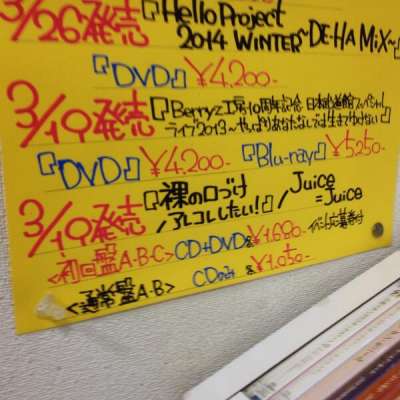 3/26発売『Hello Project
2014 WINTER~DE-HA MiX~』
『DVD』¥4,200-
3/19発売『Berryz工房10周年記念 日本武道館スペシャル
ライブ2013~やっぱりあなたなしでは生きてゆけない』
『DVD』¥4,200- 『Blu-ray』¥5,250-
3/19発売『裸の裸の口づけ
/アレコレしたい!』/Juice
=Juice
<初回盤A・B・C>CD+DVD各¥1,680- イベント応募券付
<通常盤A・B> CDのみ 各¥1,050-